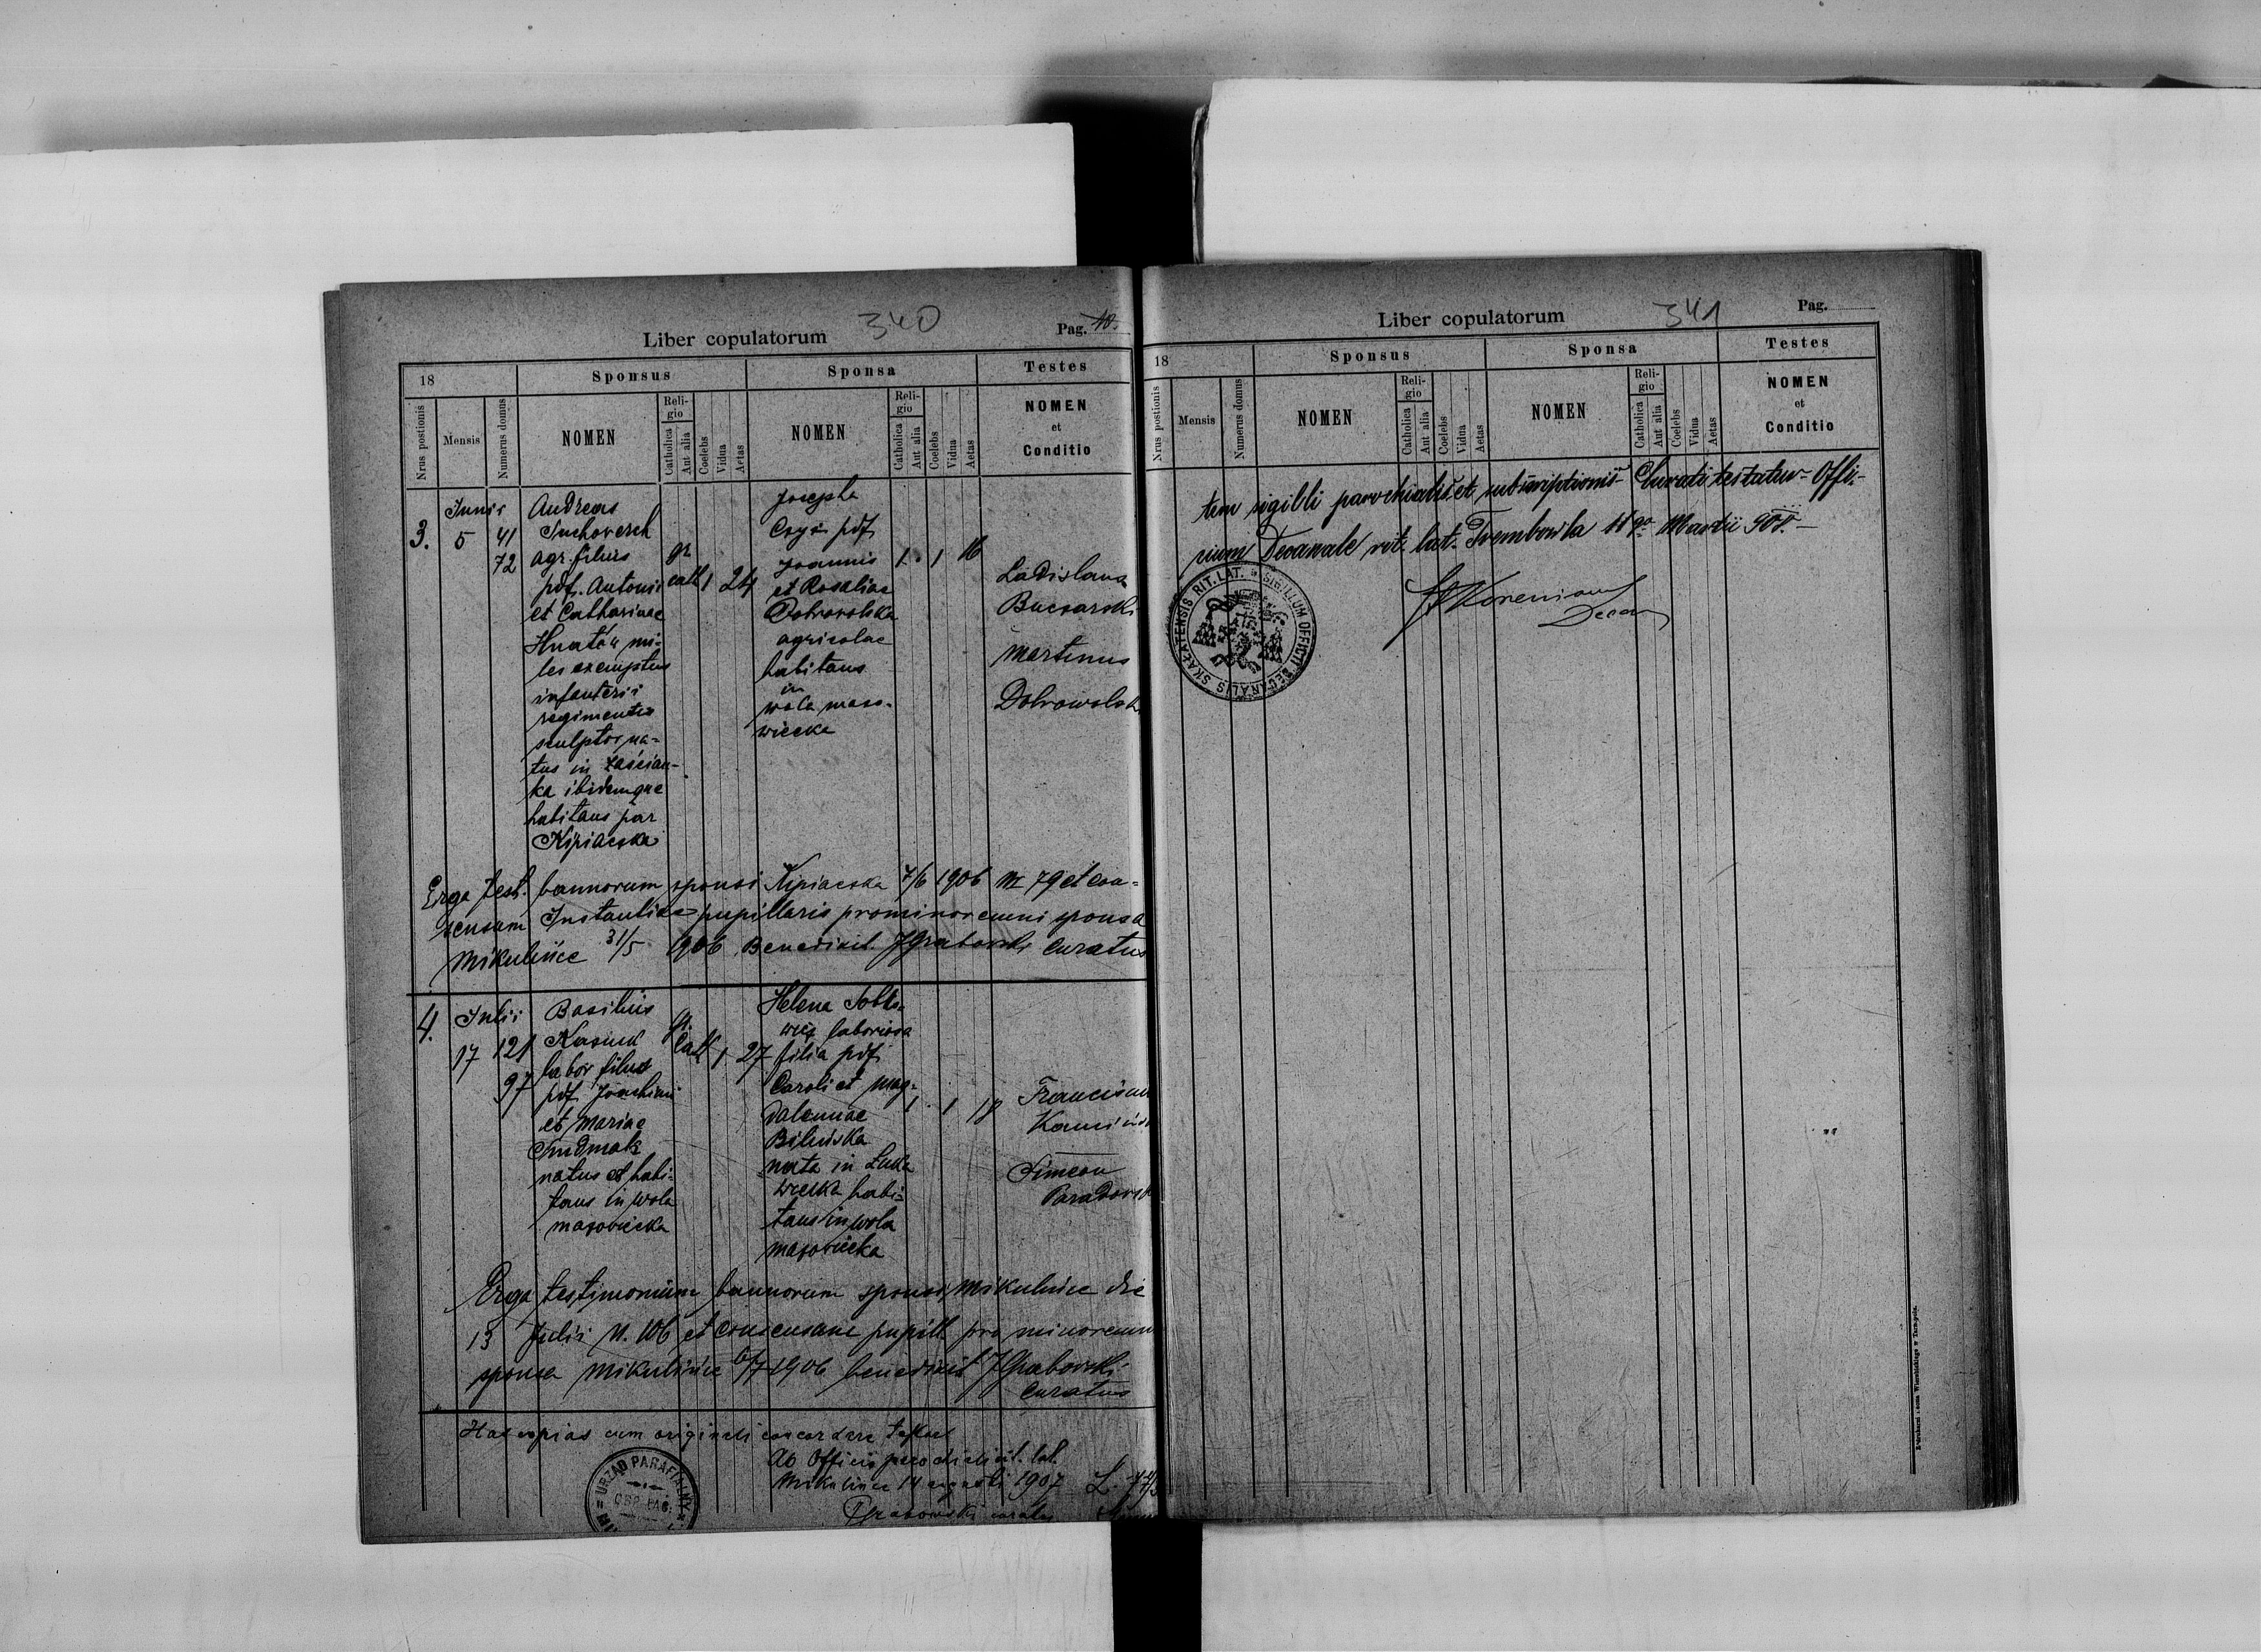 340
Liber copulatorum
Pag. 10.
18
Sponsus
Sponsa
Testes
Nrus postionis
Mensis
Numerus domus
NOMEN
Religio
Catholica
Aut alia
Coelebs
Vidua
Aetas
NOMEN
Religio
Catholica
Aut alia
Coelebs
Vidua
Aetas
NOMEN
et
Conditio
3.
Junii
5
41
72
Andreas
agr. filius
pdf. Antonii
et Catharinae
Hnatów mi-
les exemptus
infanterii
regimentis
sculptor na-
tus in Zaścian-
ka ibidemque
habitans par
Kipiaczka
gr
cath
1
24
Josepha
Czyż pdf
Joannis
et Rosaliae
Dobrowolska
agricolae
habitans
in
wola mazo-
wiecka
1
1
16
Ladislaus
Buczarski
Martinus
Dobrowolsk
Erga test. bannorum sponsi Kipiaczka 7/6 1906 Nr 79 et con-
sensum Instantiae pupillaris pro minorenni sponsa
Mikulińce 31/5 1906. Benedixit JGrabowski Curatus
4.
Julii
17
121
97
Basilius
labor filius
pdf. Joachimi
et Mariae
Sudmak
natus et habi-
tans in wola
mazowiecka
gr.
Cath
1
27
Helena
laboriosa
filia pdf
Caroli et Mag-
dalennae
Bilińska
nata in Łuka
wielka habi-
tans in wola
mazowiecka
1
1
18
Franciscus
Kamińs
Simeon
Paradowsk
Erga testimonium bannorum sponsi Mikulińce die
13 Julii N. 106 et consensum pupill pro minorenni
sponsa Mikulińce 6/7 1906 benedixit JGrabowski
Curatus
Has copias cum originali concordare testor
Ab Officio parochiali rit. lat.
Mikulińce 14 augusti 1907
Grabowski
URZĄD PARAFIALNY
OBR. ŁAC.
341
Liber copulatorum
Pag.
18
Sponsus
Sponsa
Testes
Nrus postionis
Mensis
Numerus domus
NOMEN
Religio
Catholica
Aut alia
Coelebs
Vidua
Aetas
NOMEN
Religio
Catholica
Aut alia
Coelebs
Vidua
Aetas
NOMEN
et
Conditio
tem sigilli parochialis et subscriptionis Curati testatur Offi-
cium Decanale rit. lat. Trembowla Martii
SIGILLUM OFFICII DECANALIS SKAŁATENSIS RIT. LAT.